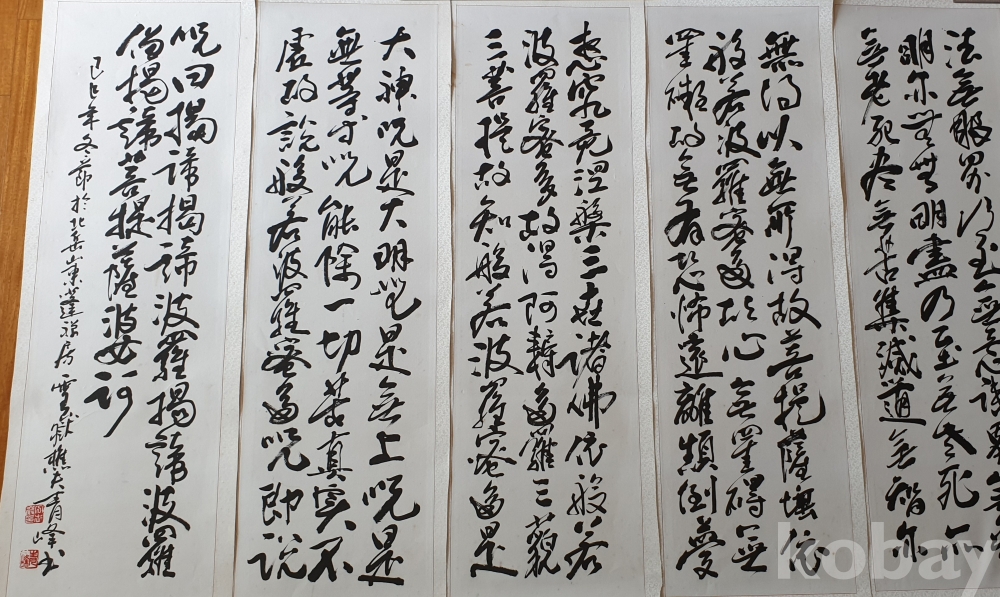 法無眼界乃至無意識界無無
明亦無無明盡乃至無老死亦
無老死盡無苦集滅道無智亦
無得以無所得故菩提薩埵依
般若波羅密多故心無罣碍無
罣礙故無有恐怖遠離顛倒夢
想究竟涅槃三世諸佛依般若
波羅密多故得阿耨多羅三藐
三菩提故知般若波羅蜜多是
大神呪是大明呪是無上呪是
無等等呪能除一切苦真實不
虛故說般若波羅蜜多呪即說
呪曰揭諦揭諦波羅揭諦波羅
僧揭諦菩提薩婆訶
己巳年冬節於北岳 蓬 房 雪嶽樵夫青峰书
kobay